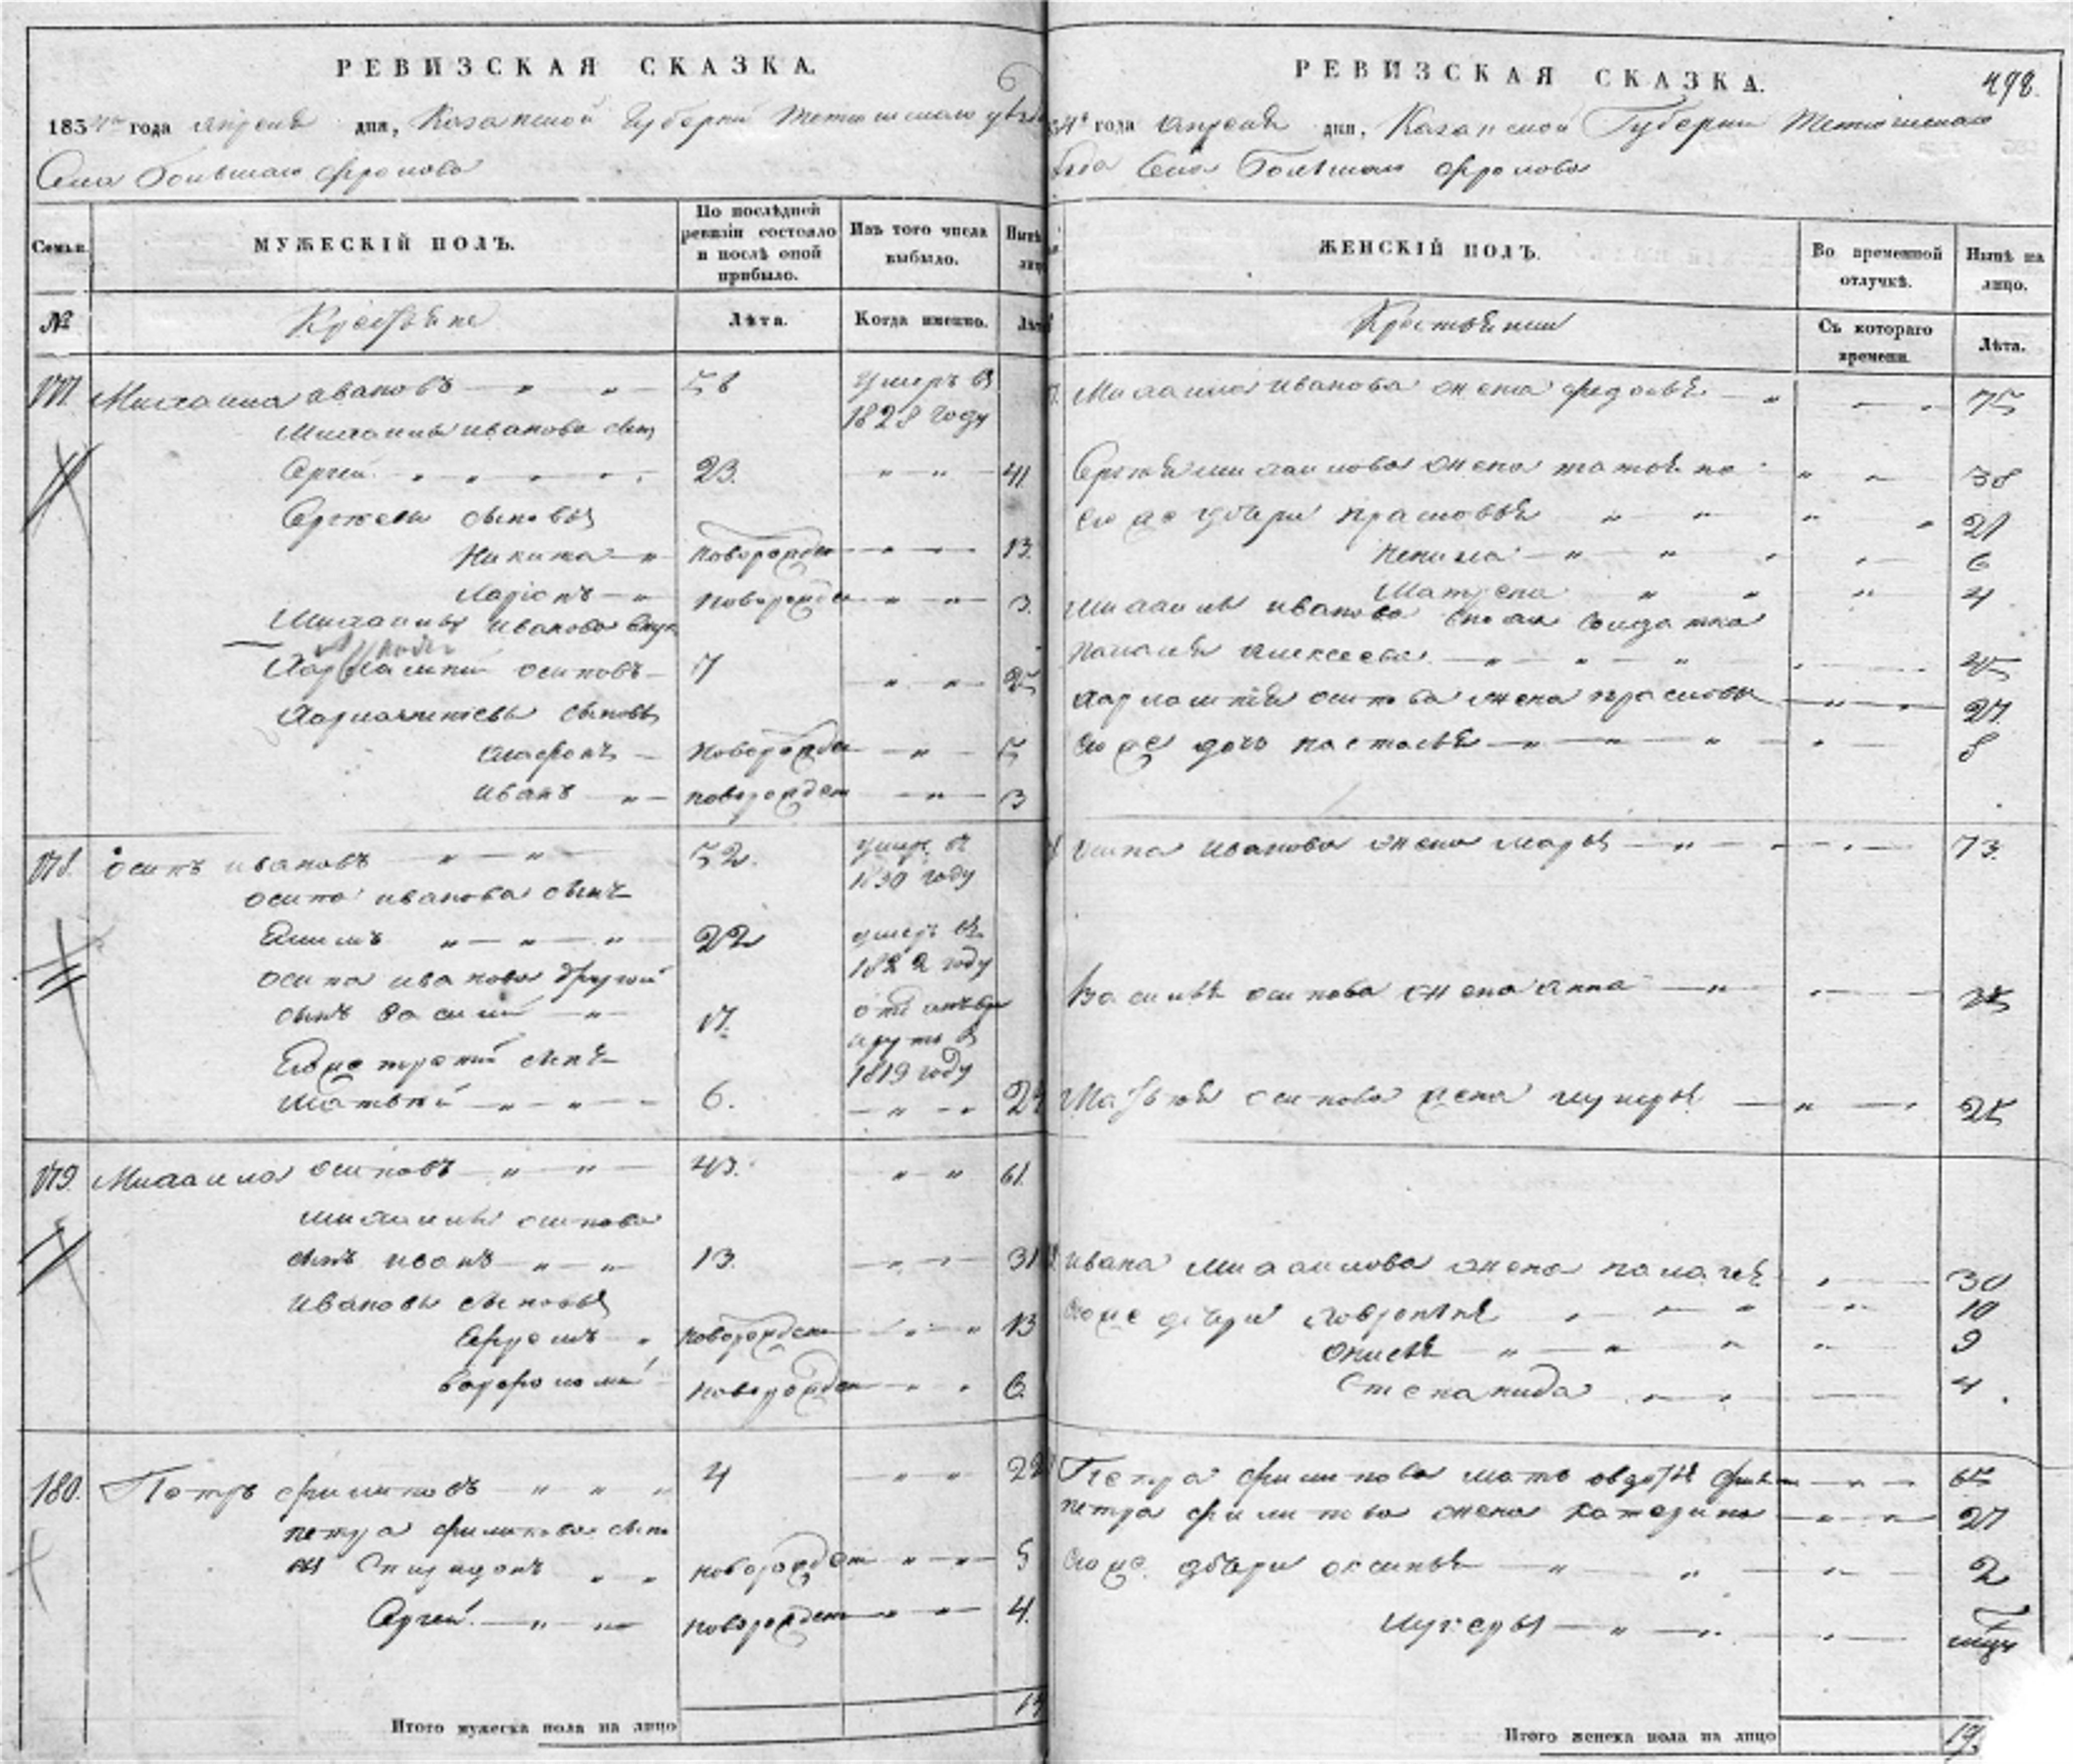 РЕВИЗСКАЯ СКАЗКА.
1834го года апреля дня, Казанской Губерни Тетюшскаго уезда
Села Большаго Фролова
Семьи.
МУЖЕСКІЙ ПОЛЪ.
По послѣдней ревизіи состояло и послѣ оной прибыло.
Изъ того числа выбыло.
Нынѣ лицо
№
Крестьяне
Лѣта.
Когда именно.
Лѣта
177. Михаила ивановъ 56 умеръ в 1828 году
Михаилы иванова сын
Сергей 23. 41
Сергеевы сыновья
Никита новорожден 13.
Ларіонъ новорожден 3.
Михаилы иванова внук
Харлампий осиповъ 7 25
Харлампиевы сыновья
новорожден 5
иванъ новорожден 3
178. осипъ ивановъ 52. умер в 1830 году
осипа иванова сынъ
22 умеръ въ 1822 году
осипа иванова другой
сынъ василий 17. отданъ в рекруты в 1819 году
сынъ
матвей 6. 24
179. Михаила осиповъ 43. 61.
михаилы осипова
сынъ иванъ 13. 31
Ивановы сыновья
Ефремъ новорожден 13
варфоломей новорожден 6
180. Петръ филиповъ 4 22
петра филипова сыно
вья Спиридонъ новорожден 5
Сергей новорожден 4.
Итого мужеска пола на лицо
РЕВИЗСКАЯ СКАЗКА.
498.
34го года апреля дня, Казанской Губерни Тетюшскаго
уезда Села Большаго Фролова
ЖЕНСКІЙ ПОЛЪ.
Во временной отлучкѣ.
Нынѣ на лицо.
Крестьянки
Съ котораго времени.
Лѣта.
Михаила Иванова жена федосья 75
Сергея михаилова жена татьяна 38
ево же дочери прасковья 21
ненила 6
Матрена 4
михаилы иванова сноха солдатка
наталья алексеева 45
харлампия осипова жена прасковья 27.
ево же дочь настасья 8
осипа иванова жена марья 73.
василья осипова жена анна 35
Матвея осипова жена лукерья 25
ивана михаилова жена палагея 30
ево же дочери 10
9
Степанида 4
Петра филипова мать авдотья 65
петра филипова жена катерина 27
ево же дочери аксинья 2
лукерья
Итого женска пола на лицо 19.